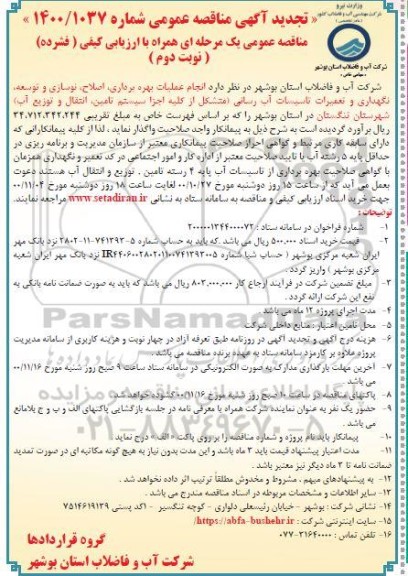 وزارت نیرو
شرکت مهندسی آب و فاضلاب کشور
« تجدید آگهی مناقصه عمومی شماره ۱۴۰۰/۱۰۳۷ »
مناقصه عمومی یک مرحله ای همراه با ارزیابی کیفی ( فشرده)
( نوبت دوم )
شرکت آب و فاضلاب استان بوشهر
شرکت آب و فاضلاب استان بوشهر در نظر دارد انجام عملیات بهره برداری، اصلاح، نوسازی و توسعه،
نگهداری و تعمیرات تاسیسات آب رسانی (متشکل از کلیه اجزا سیستم تامین، انتقال و توزیع آب)
شهرستان تنگستان در استان بوشهر را که بر اساس فهرست خاص به مبلغ تقریبی ۳۴,۷۱۲,۳۴۲,۲۴۴
ریال برآورد گردیده است به شرح ذیل به پیمانکار واجد صلاحیت واگذار نماید ، لذا از کلیه پیمانکارانی که
دارای سابقه کاری مرتبط و گواهی احراز صلاحیت پیمانکاری معتبر از سازمان مدیریت و برنامه ریزی در
حداقل پایه ۵ رشته آب با تایید صلاحیت معتبر از اداره کار و امور اجتماعی در کد تعمیر و نگهداری همزمان
با گواهی صلاحیت بهره برداری از تاسیسات آب پایه ۴ رسته تامین ، توزیع و انتقال آب هستند دعوت
بعمل می آید که از ساعت ۱۵ روز دوشنبه مورخ ۰۰/۱۰/۲۷ لغایت ساعت ۱۸ روز دوشنبه مورخ ۰۰/۱۱/۰۴
جهت خرید اسناد ارزیابی کیفی و مناقصه به سامانه ستاد به نشانی www.setadiran.ir مراجعه نمایند.
توضیحات :
۱- شماره فراخوان در سامانه ستاد : ۲۰۰۰۰۰۱۳۴۴۰۰۰۰۷۲
۲- قیمت خرید اسناد ۵۰۰,۰۰۰ ریال می باشد .که باید به حساب شماره ۵-۷۴۱۳۹۲-۱۱-۲۸۰۲ نزد بانک مهر
ایران شعبه مرکزی بوشهر ( حساب شبا شماره نزد بانک مهر ایران شعبه
مرکزی بوشهر ) واریز گردد .
۳- مبلغ تضمین شرکت در فرآیند ارجاع کار ۸۰۳,۰۰۰,۰۰۰ ریال می باشد که باید به صورت ضمانت نامه بانکی به
نفع این شرکت ارائه گردد .
۴- مدت اجرای پروژه ۱۲ ماه می باشد .
۵- محل تامین اعتبار : منابع داخلی شرکت
۶- هزینه درج آگهی و تجدید آگهی در روزنامه طبق تعرفه آزاد در چهار نوبت و هزینه کاربری از سامانه مدیریت
پروژه علاوه بر کارمزد سامانه ستاد به عهده برنده مناقصه می باشد .
۷- آخرین مهلت بارگذاری مدارک به صورت الکترونیکی در سامانه ستاد ساعت ۹ صبح روز شنبه مورخ ۰۰/۱۱/۱۶
می باشد .
۸- پاکتهای مناقصه در ساعت ۱۰ صبح روز شنبه مورخ ۰۰/۱۱/۱۶ گشوده خواهد شد.
۹- حضور یک نفر به عنوان نماینده شرکت همراه با معرفی نامه در جلسه بازگشایی پاکتهای الف و ب و ج بلامانع
می باشد .
۱۰- پیمانکار باید نام پروژه و شماره مناقصه را بر روی پاکت « الف » درج نماید
۱۱- مدت اعتبار پیشنهاد قیمت باید ۳ ماه باشد و این مدت بدون نیاز به هیچ گونه مکاتبه ای در صورت تمدید
ضمانت نامه تا ۳ ماه دیگر نیز معتبر باشد .
۱۲- به پیشنهادهای مبهم ، مشروط و مخدوش مطلقاً ترتیب اثر داده نخواهد شد .
۱۳- سایر اطلاعات و مشخصات مربوطه در اسناد مناقصه مندرج می باشد .
۱۴- نشانی شرکت : بوشهر - خیابان رئیسعلی دلواری - کوچه تنگسیر - کد پستی ۷۵۱۴۶۱۹۱۳۹
۱۵- سایت اینترنتی شرکت : https://abfa-bushehr.ir/
۱۶- تلفن تماس : ۳۱۶۴۰۰۰۰-۰۷۷
گروه قراردادها
شرکت آب و فاضلاب استان بوشهر
ParsNamadData
۰۲۱-۸۸۳۴۹۶۷۰-۵